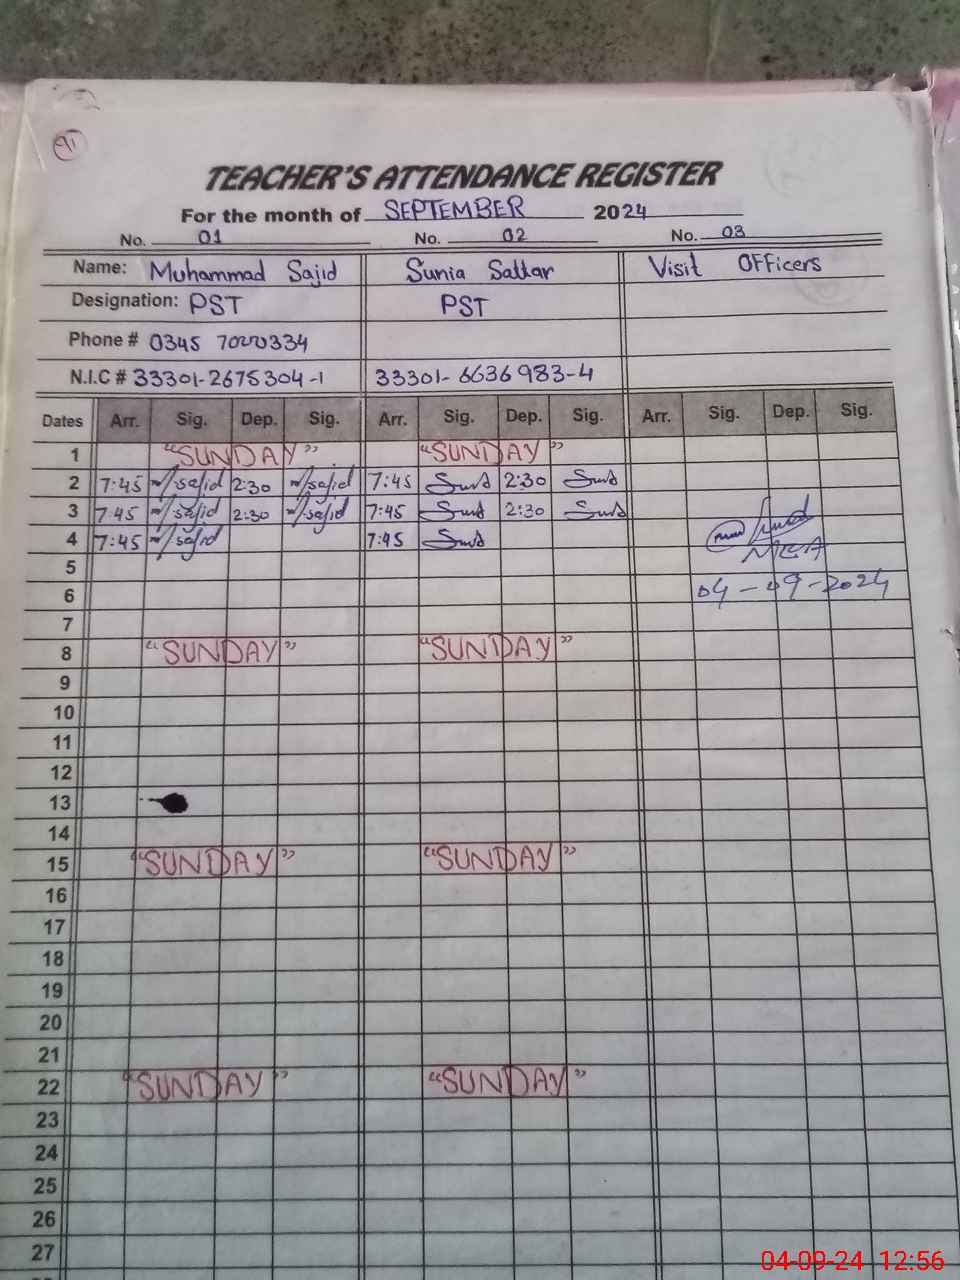 91
TEACHER'S ATTENDANCE REGISTER
For the month of SEPTEMBER 2024
No. 01 No. 02 No. 03
Name: Muhammad Sajid Sunia Sattar Visit OFFicers
Designation: PST PST
Phone # 0345 7000334
N.I.C # 33301-2675304-1 33301-6636983-4
Dates Arr. Sig. Dep. Sig. Arr. Sig. Dep. Sig. Arr. Sig. Dep. Sig.
1 "SUNDAY" "SUNDAY"
2 7:45 M/sajid 2:30 M/sajid 7:45 2:30
3 7:45 M/sajid 2:30 M/sajid 7:45 2:30
4 7:45 M/sajid 7:45
MEA
5
6 04-09-2024
7
8 "SUNDAY" "SUNDAY"
9
10
11
12
13
14
15 "SUNDAY" "SUNDAY"
16
17
18
19
20
21
22 "SUNDAY" "SUNDAY"
23
24
25
26
27
04-09-24 12:56